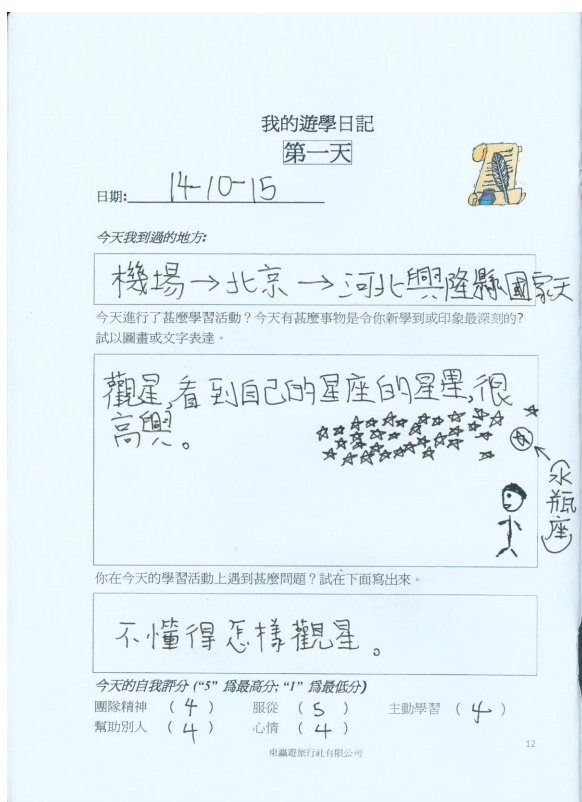 我的遊學日記
第一天
日期: 14-10-15
今天我到過的地方:
機場→北京→河北興隆縣國家天
今天進行了甚麼學習活動？今天有甚麼事物是令你新學到或印象最深刻的?
試以圖畫或文字表達。
觀星,看到自己的星座的星星,很
高興。
(水瓶座)
你在今天的學習活動上遇到甚麼問題？試在下面寫出來。
不懂得怎樣觀星。
今天的自我評分 (“5” 爲最高分; “1” 爲最低分)
團隊精神 ( 4 ) 服從 ( 5 ) 主動學習 ( 4 )
幫助別人 ( 4 ) 心情 ( 4 )
東瀛遊旅行社有限公司
12